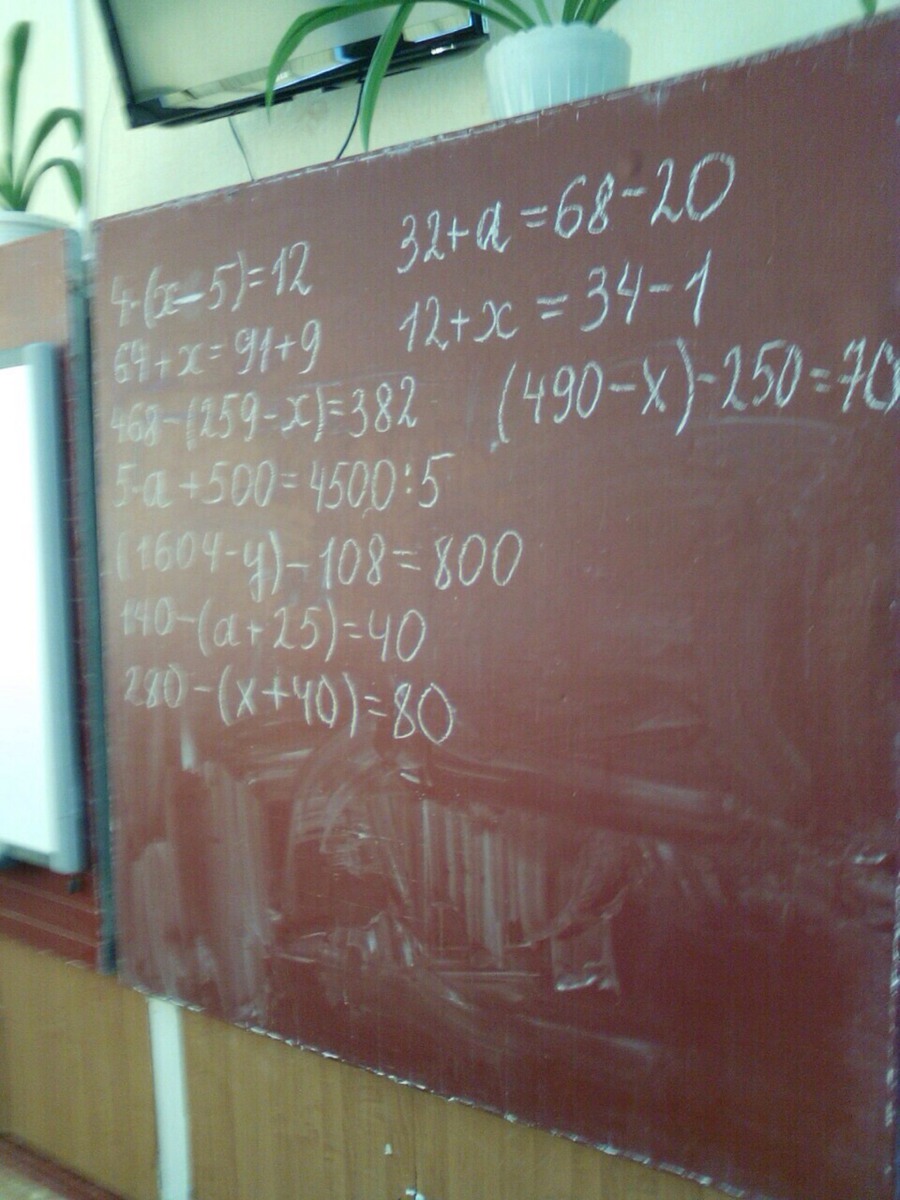 4·(x-5)=12
64+x=91+9
468-(259-x)=382
5·a+500=4500:5
(1604-y)-108=800
140-(a+25)=40
280-(x+40)=80
32+a=68-20
12+x=34-1
(490-x)-250=70